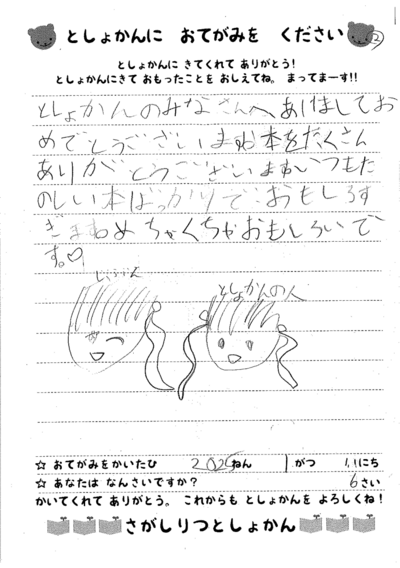 としょかんに おてがみを ください
②
としょかんに きてくれて ありがとう!
としょかんにきて おもったことを おしえてね。 まってまーす!!
としょかんのみなさんへ、あけましてお
めでとうございます本をたくさん
ありがとうございますいつもた
のしい本ばっかりで、おもしろす
ぎますめちゃくちゃおもしろいで
す。♡
としょかんの人
☆ おてがみをかいたひ 2025ねん 1がつ 11にち
☆ あなたは なんさいですか? 6さい
かいてくれて ありがとう。 これからも としょかんを よろしくね!
さがしりつとしょかん